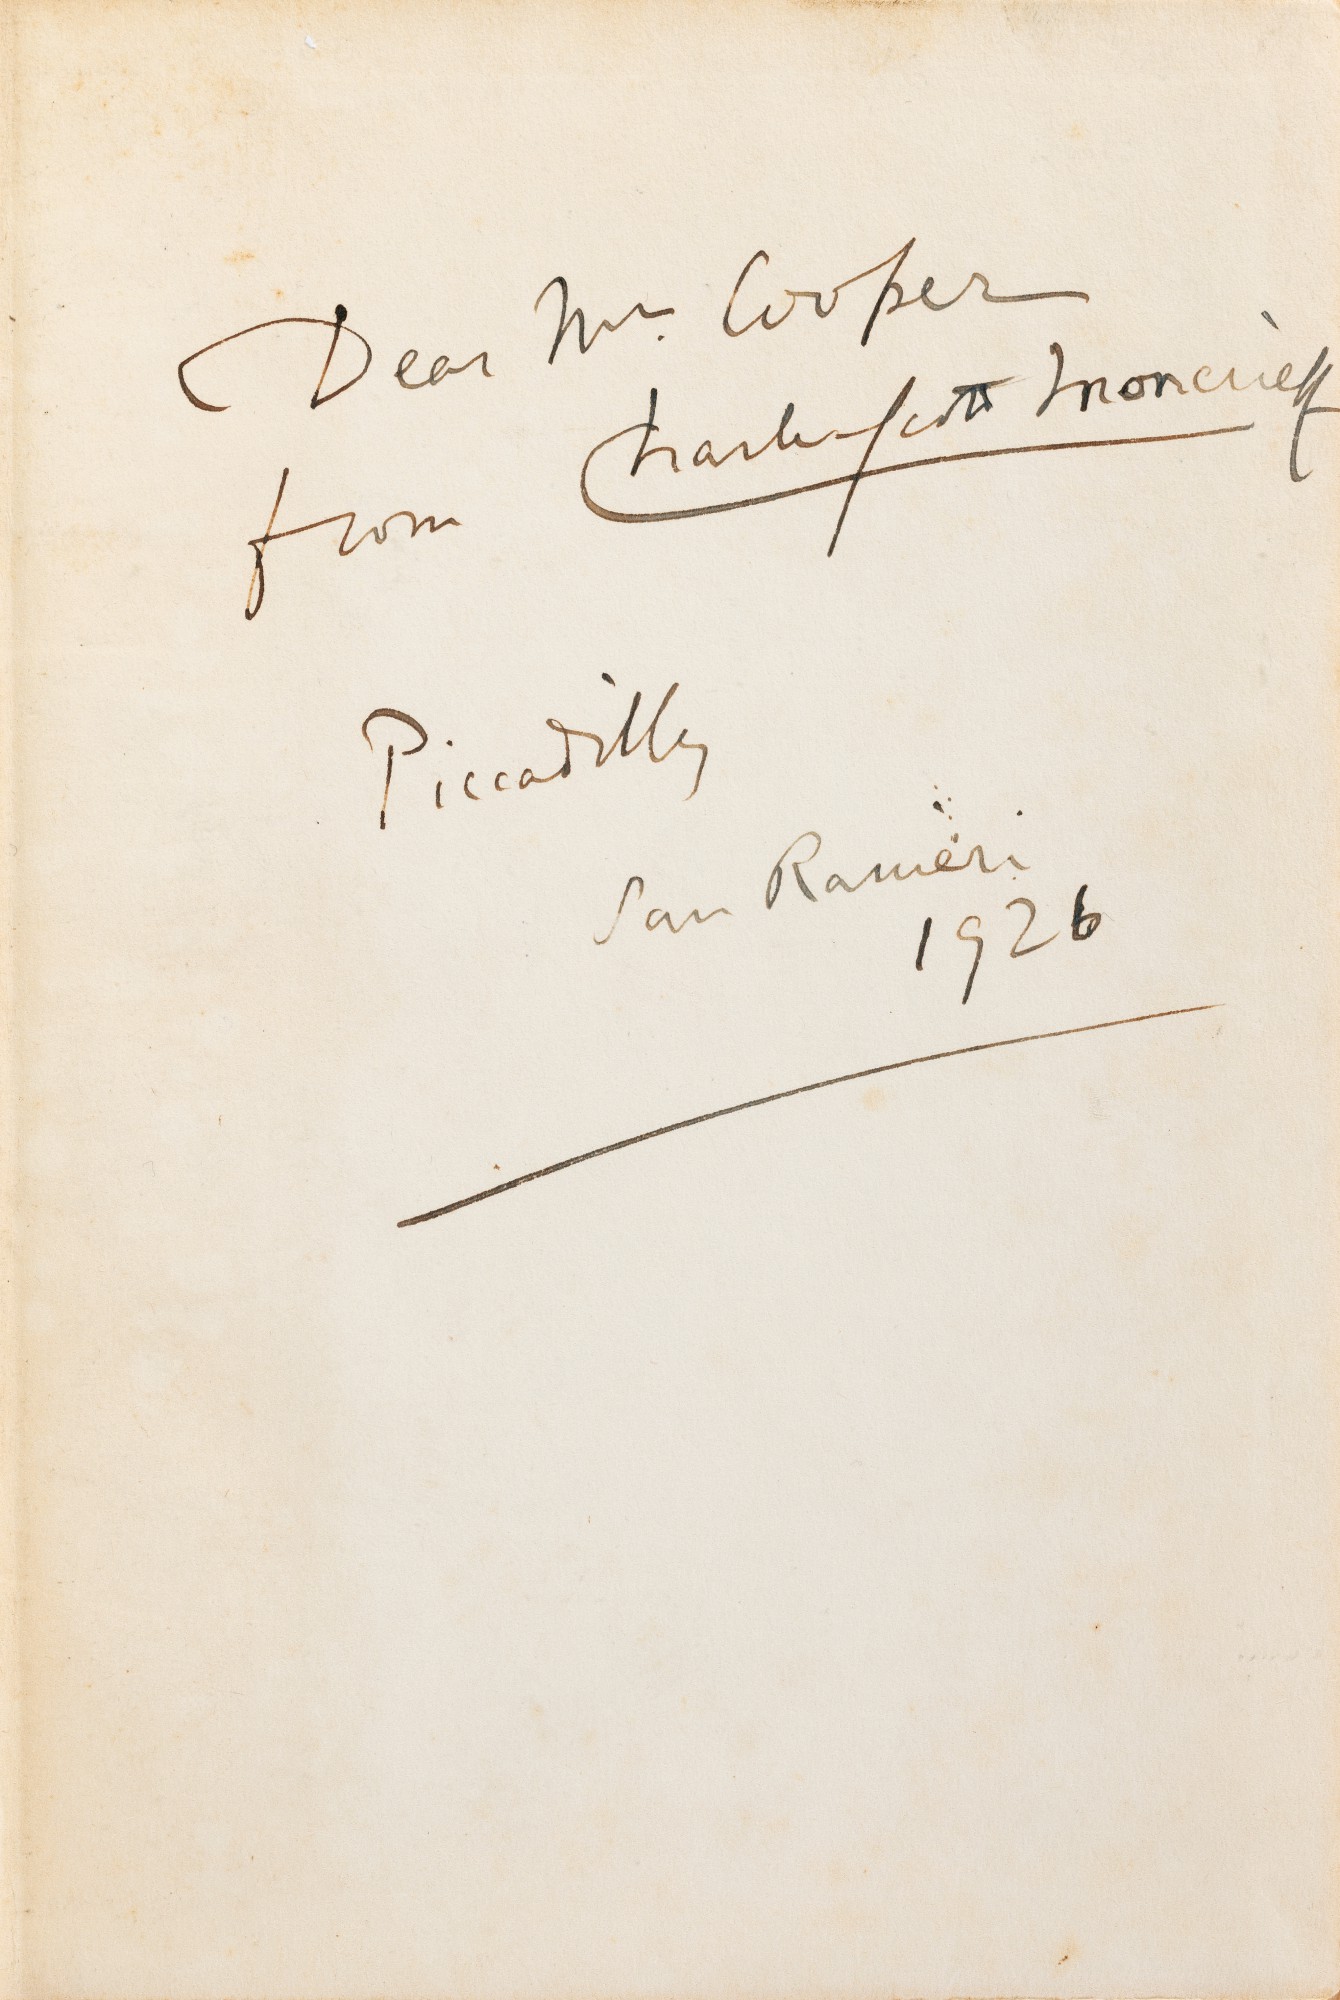 Dear Mr. Cooper
from Charles Scott Moncrieff
Piccadilly
San Ranieri
1926